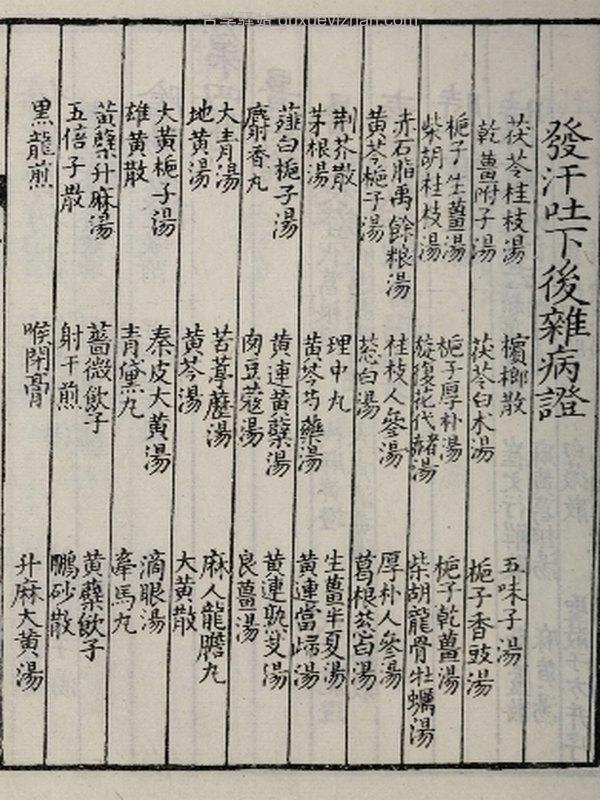 發汗吐下後雜病證
茯苓桂枝湯 檳榔散 五味子湯
乾薑附子湯 茯苓白朮湯 梔子香豉湯
梔子生薑湯 梔子厚朴湯 梔子乾薑湯
柴胡桂枝湯 旋復花代赭湯 柴胡龍骨牡蠣湯
赤石脂禹餘粮湯 桂枝人參湯 厚朴人參湯
黃芩梔子湯 葱白湯 葛根葱白湯
荆芥散 理中丸 生薑半夏湯
茅根湯 黃芩芍藥湯 黃連當歸湯
薤白梔子湯 黃連黃蘗湯 黃連湯
麝香丸 肉豆蔻湯 良薑湯
大青湯 苦葶藶湯 麻人龍膽丸
地黃湯 黃芩湯 大黃散
大黃梔子湯 秦皮大黃湯 滴眼湯
雄黃散 青黛丸 牽馬丸
黃蘗升麻湯 薔薇飲子 黃蘗飲子
五倍子散 射干煎 鵬砂散
黑龍煎 喉閉膏 升麻大黃湯